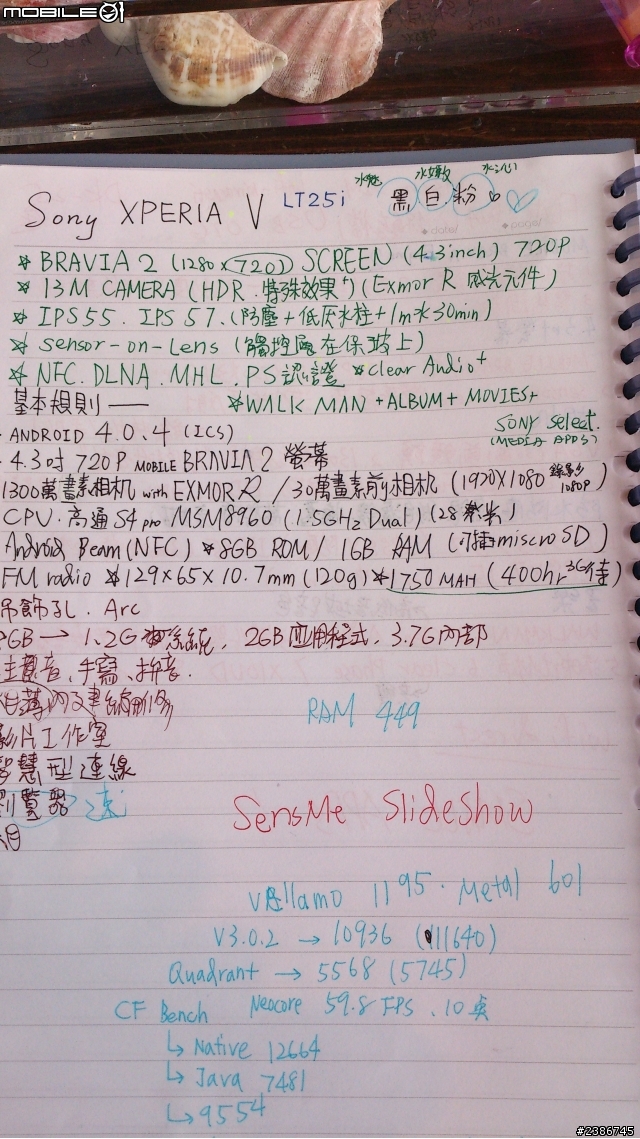 MOBILE01
水魅 水嫩 水沁
Sony XPERIA V LT25i 黑白粉
☆ BRAVIA 2 (1280 x 720) SCREEN (4.3inch) 720P
☆ 13M CAMERA (HDR.特殊效果+) (Exmor R 感光元件)
☆ IPS55. IPS57. (防塵+低压水柱+1m水30min)
☆ Sensor-on-Lens (觸控區在保玻上)
☆ NFC. DLNA. MHL. PS認證 ☆clear Audio+
基本規則 —— ☆WALK MAN +ALBUM+ MOVIES+
SONY Select.
(MEDIA APPS)
. ANDROID 4.0.4 (ICS)
. 4.3吋 720P MOBILE BRAVIA 2 螢幕
1300萬畫素相机 with EXMOR R / 30萬畫素前相机 (1920X1080 錄影 1080P)
CPU. 高通 S4 pro MSM8960 (1.5GHz Dual) (28奈米)
Android Beam (NFC) ☆8GB ROM / 1GB RAM (可插miscroSD)
FM radio ☆129×65×10.7mm (120g) ☆1750 MAH (400hr 3G待)
吊飾孔. Arc
GB → 1.2G 系統. 2GB 应用程式. 3.7G內部
注音、手寫、拼音.
RAM 449
影片工作室
智慧型連線
瀏覽器 速
SensMe SlideShow
Vellamo 1195. Metal 601
V3.0.2 → 10936 (11640)
Quadrant → 5568 (5745)
CF Bench Neocore 59.8 FPS. 10点
↳ Native 12664
↳ Java 7481
↳ 9554
#2386745